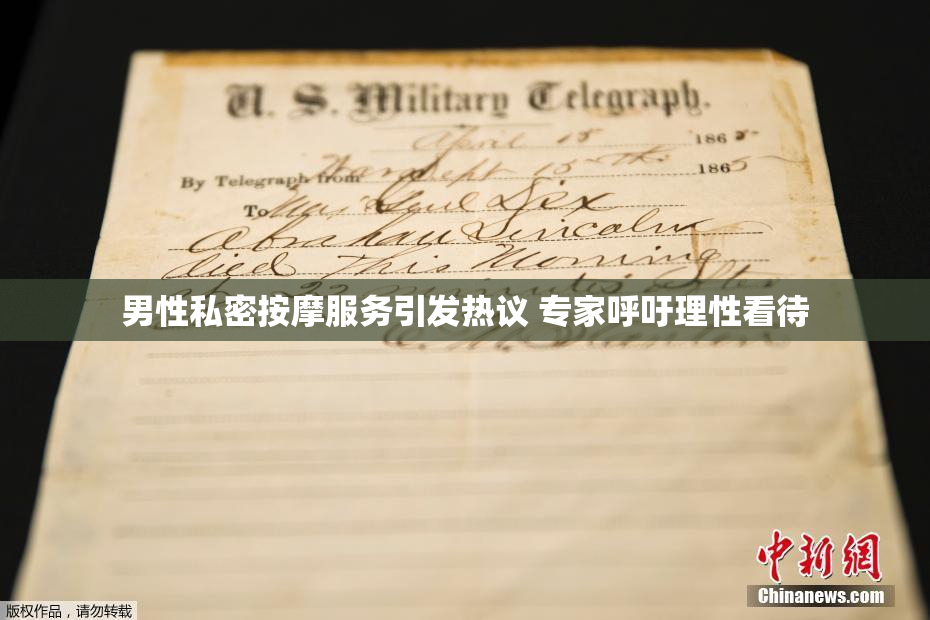 U. S. Military Telegraph.
April 15 1865
By Telegraph from War Dept 15th 1865
To Maj Genl Dix
Abraham Lincoln
died This Morning
22 minutes after
男性私密按摩服务引发热议 专家呼吁理性看待
E. M. Stanton
中新網
Chinanews.com
版权作品，请勿转载